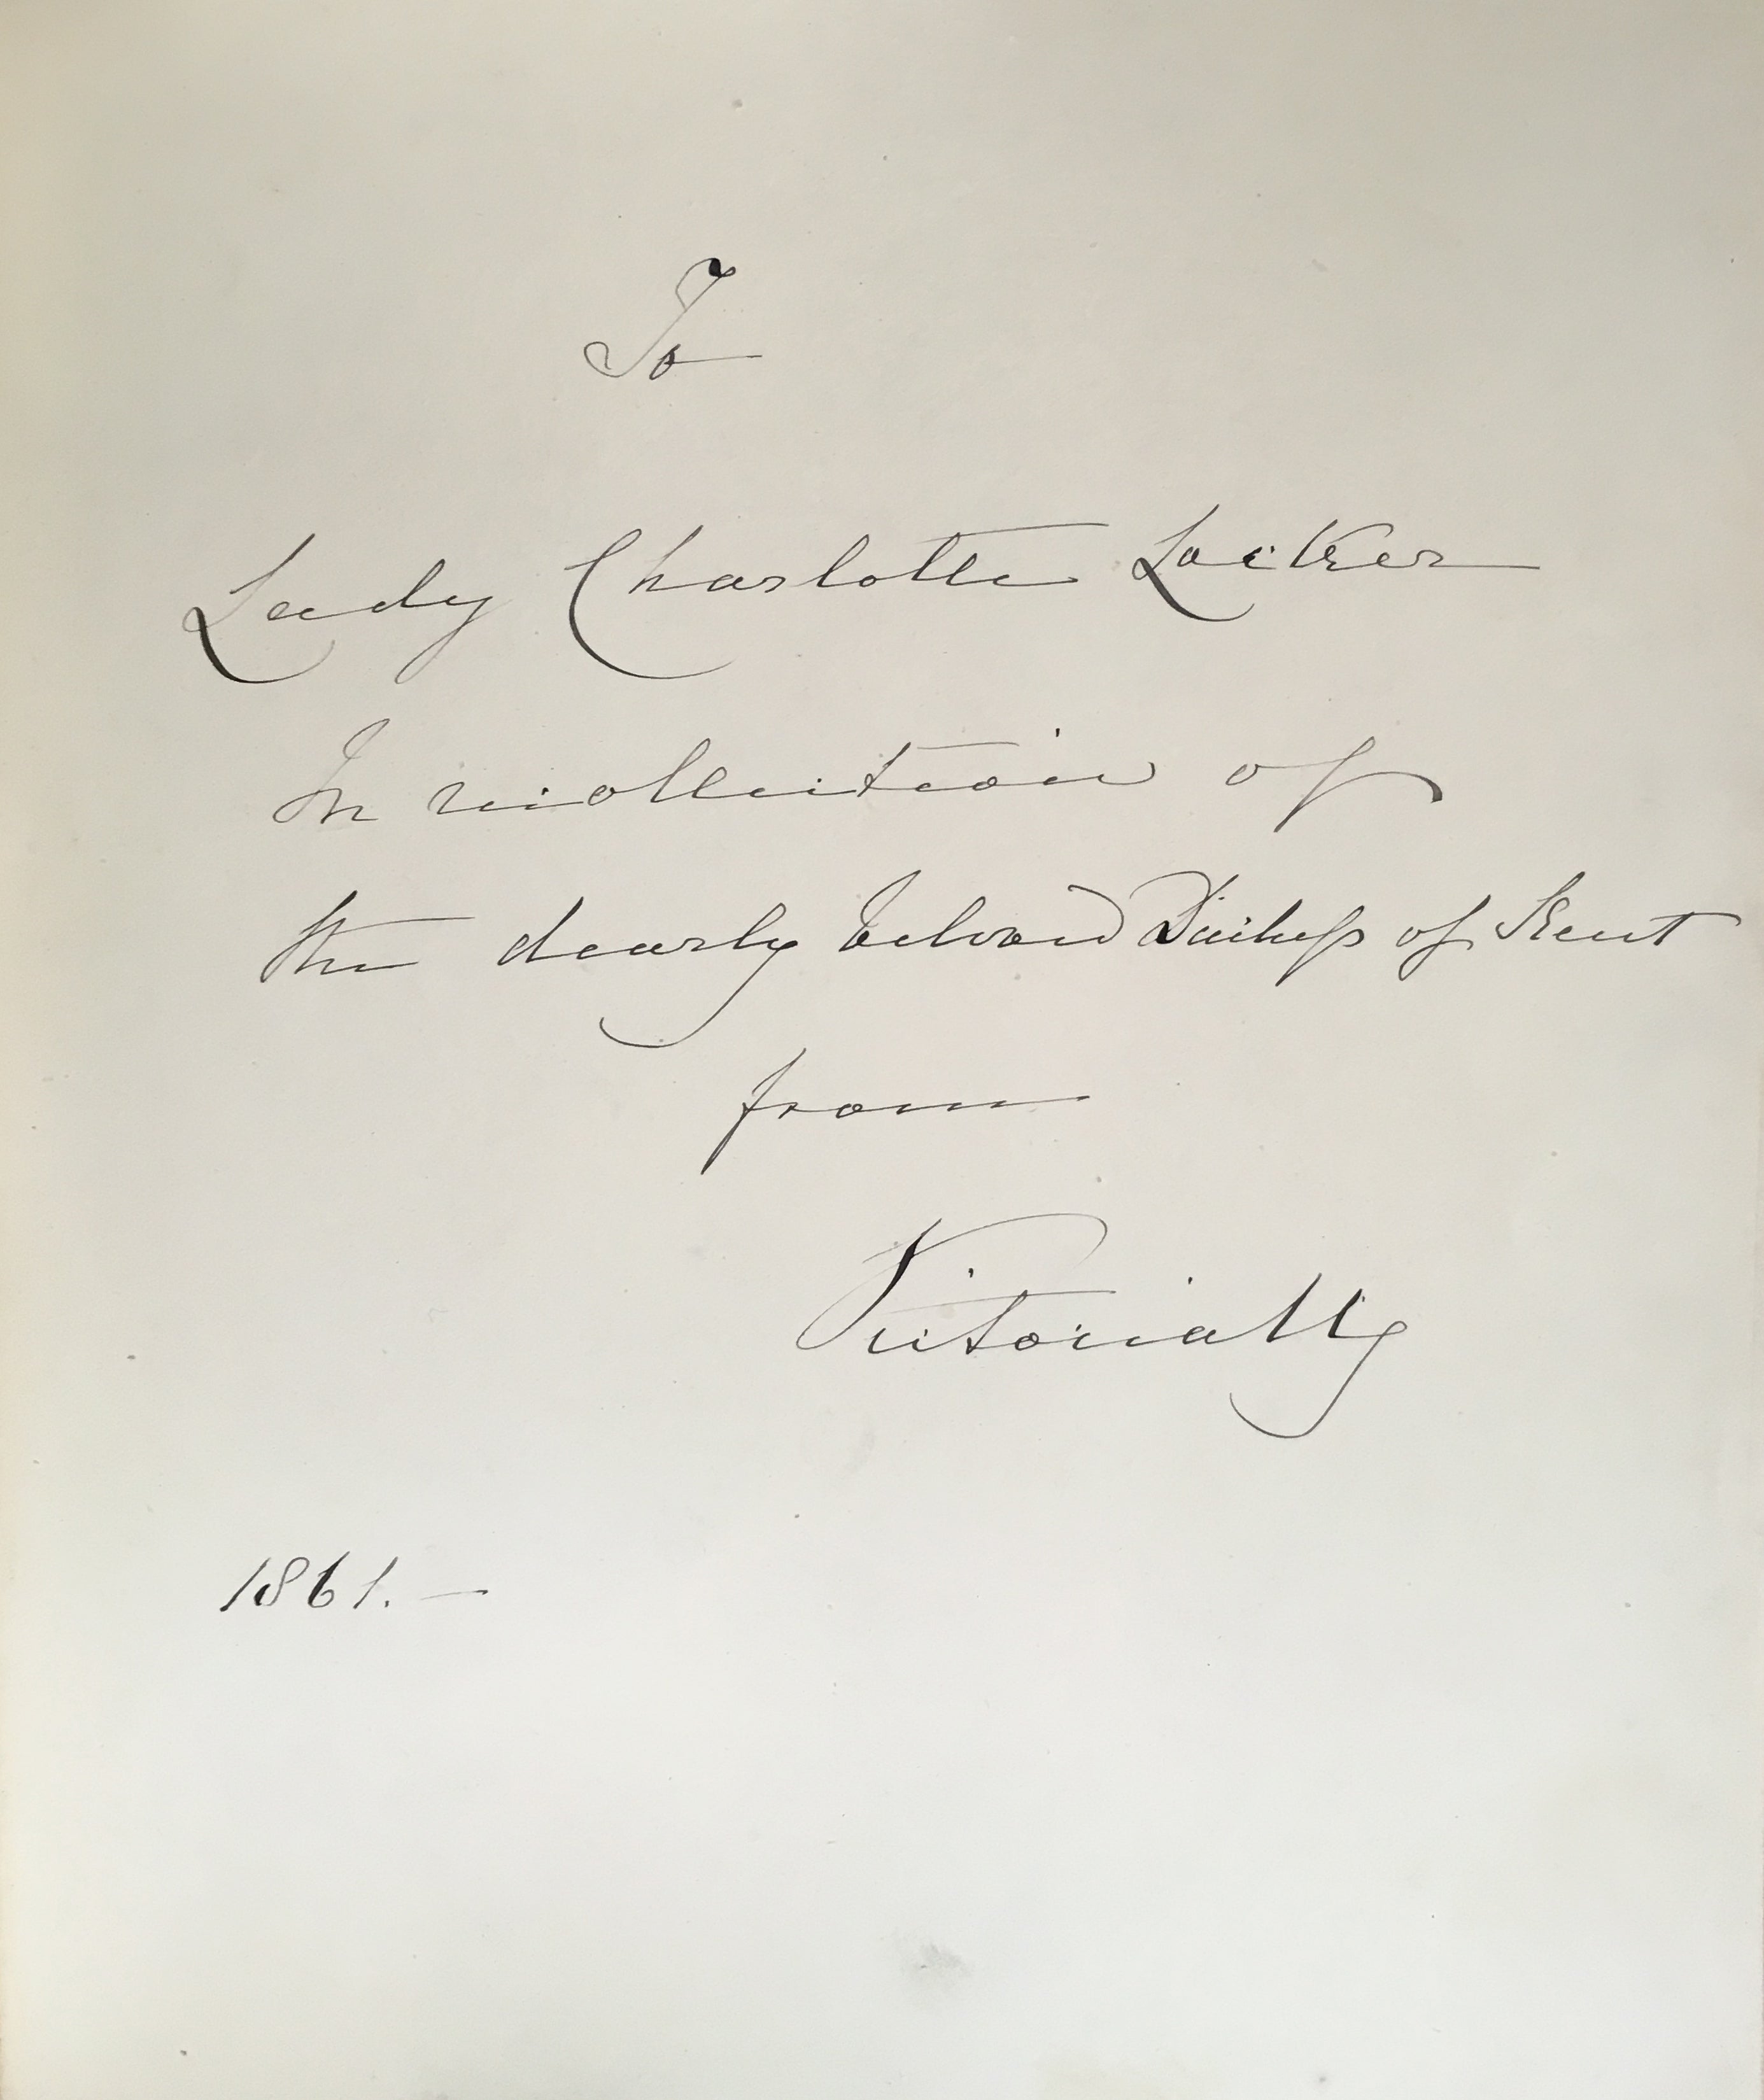 To
Lady Charlotte Locker
In recollection of
the dearly beloved Duchess of Kent
from
Victoria R
1861. —